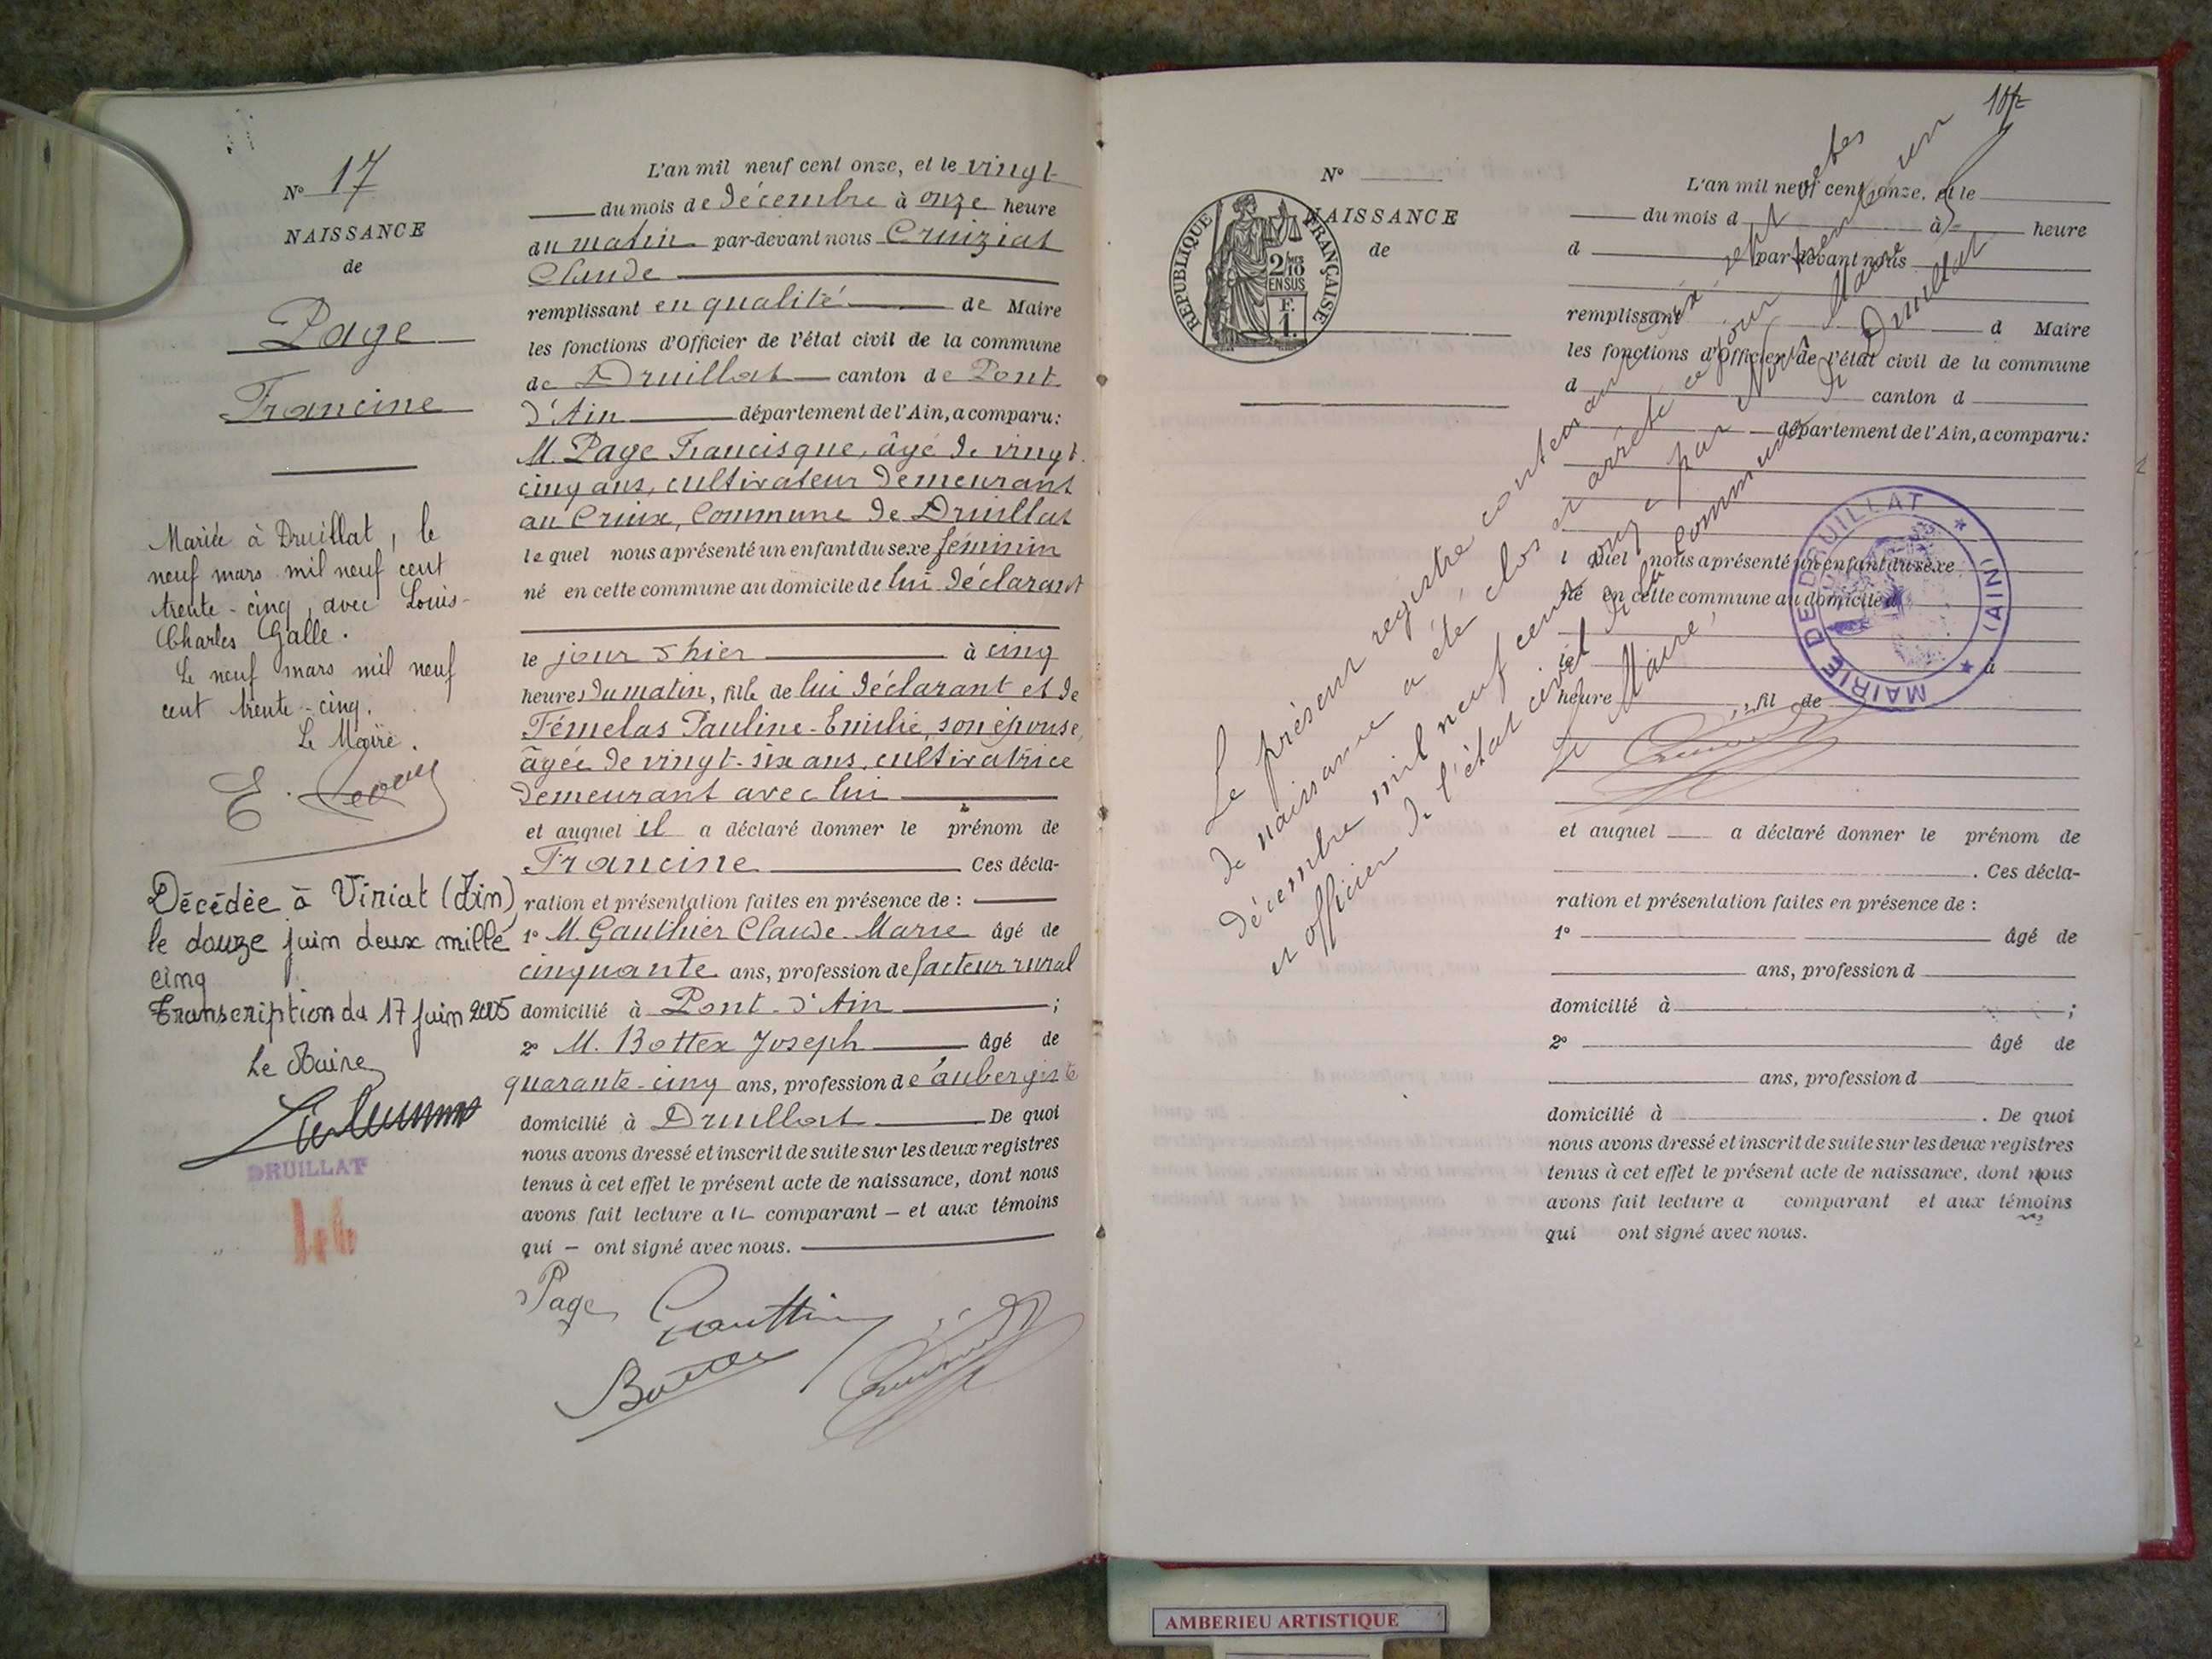 N° 17
NAISSANCE
de
Page
Francine
Mariée à Druillat, le
neuf mars mil neuf cent
trente-cinq, avec Louis-
Charles Galle.
Le neuf mars mil neuf
cent trente-cinq.
Le Maire.
Décédée à Viriat (Ain)
le douze juin deux mille
cinq
Transcription du 17 juin 2005
Le Maire
DRUILLAT
L'an mil neuf cent onze, et le vingt
du mois de décembre à onze heure
du matin par-devant nous Cruiziat
Claude
remplissant en qualité de Maire
les fonctions d'Officier de l'état civil de la commune
de Druillat canton de Pont
d'Ain département de l'Ain, a comparu:
M. Page Francisque, âgé de vingt
cinq ans, cultivateur demeurant
au Crieux, Commune de Druillat
lequel nous a présenté un enfant du sexe féminin
né en cette commune au domicile de lui déclarant
le jour d'hier à cinq
heures du matin, fille de lui déclarant et de
Fémelas Pauline-Emilie, son épouse,
âgée de vingt-six ans, cultivatrice
demeurant avec lui
et auquel il a déclaré donner le prénom de
Francine Ces décla-
ration et présentation faites en présence de :
1° M. Gauthier Claude Marie âgé de
cinquante ans, profession de facteur rural
domicilié à Pont-d'Ain ;
2° M. Bottex Joseph âgé de
quarante-cinq ans, profession d'aubergiste
domicilié à Druillat De quoi
nous avons dressé et inscrit de suite sur les deux registres
tenus à cet effet le présent acte de naissance, dont nous
avons fait lecture au comparant – et aux témoins
qui – ont signé avec nous.
Page
N°
NAISSANCE
de
RÉPUBLIQUE FRANÇAISE
2/10
EN SUS
F.
1.
L'an mil neuf cent onze, et le
du mois d à heure
d par-devant nous
remplissant d Maire
les fonctions d'Officier de l'état civil de la commune
d canton d
département de l'Ain, a comparu:
l quel nous a présenté un enfant du sexe
né en cette commune au domicile d
le à
heure , fil de
et auquel a déclaré donner le prénom de
. Ces décla-
ration et présentation faites en présence de :
1° âgé de
ans, profession d
domicilié à ;
2° âgé de
ans, profession d
domicilié à . De quoi
nous avons dressé et inscrit de suite sur les deux registres
tenus à cet effet le présent acte de naissance, dont nous
avons fait lecture a comparant et aux témoins
qui ont signé avec nous.
Le présent registre contenant dix sept actes
de naissance a été clos et arrêté ce jour trente un
décembre mil neuf cent onze par Nous Maire
et officier de l'état civil de la Commune de Druillat
Le Maire,
MAIRIE DE DRUILLAT
(AIN)
AMBERIEU ARTISTIQUE